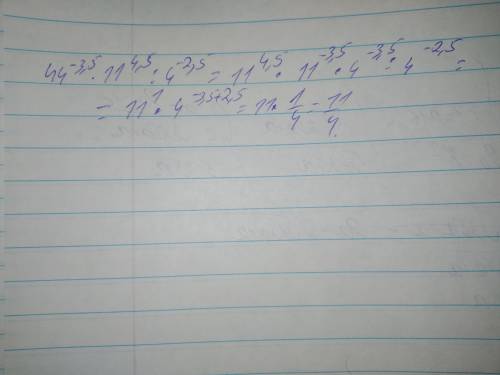 44^-3,5 · 11^4,5 : 4^-2,5 = 11^4,5 · 11^-3,5 · 4^-3,5 : 4^-2,5 =
= 11^1 · 4^-3,5+2,5 = 11 · 1/4 = 11/4